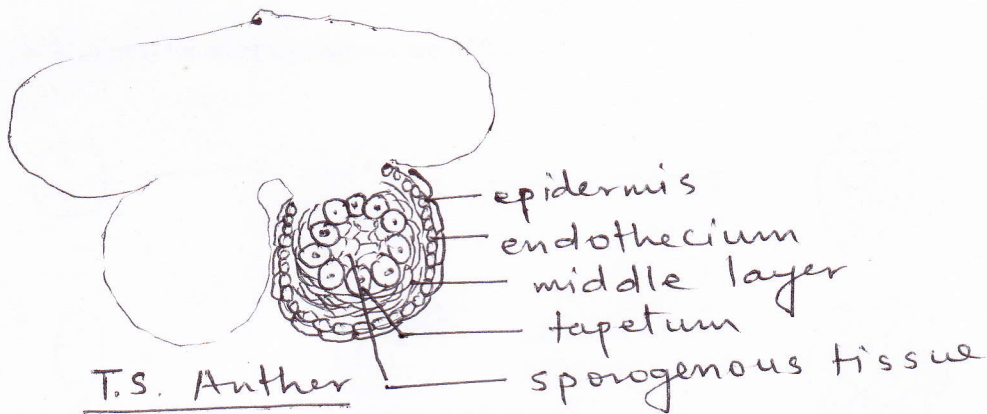 epidermis
endothecium
middle layer
tapetum
sporogenous tissue
T.S. Anther